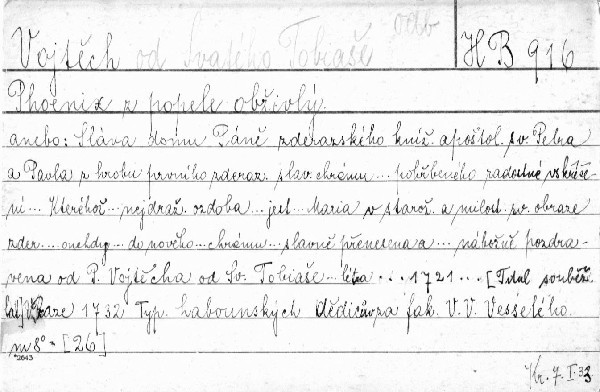 Vojtěch od Svatého Tobiáše octb HB 916
Phoenix z popele obživlý.
anebo: Sláva domu Páně zderazského kníž. apoštol. sv. Petra
a Pavla z hrobu prvního zderaz. slav. chrámu... pohřbeného radostné vzkříše-
ní... Kteréhož... nejdraž. ozdoba... jest... Maria v starož. a milost. sv. obraze
zder... onehdy... do nového... chrámu... slavně přenešena a... nábožně pozdra-
vena od P. Vojtěcha od Sv. Tobiáše... léta... 1721... [Titul souběž.
lat] V Praze 1732 Typ. Labounských dědiců za fak. V. V. Vesselého.
m 8° [26]
*2643
Kr. 7. I. 33